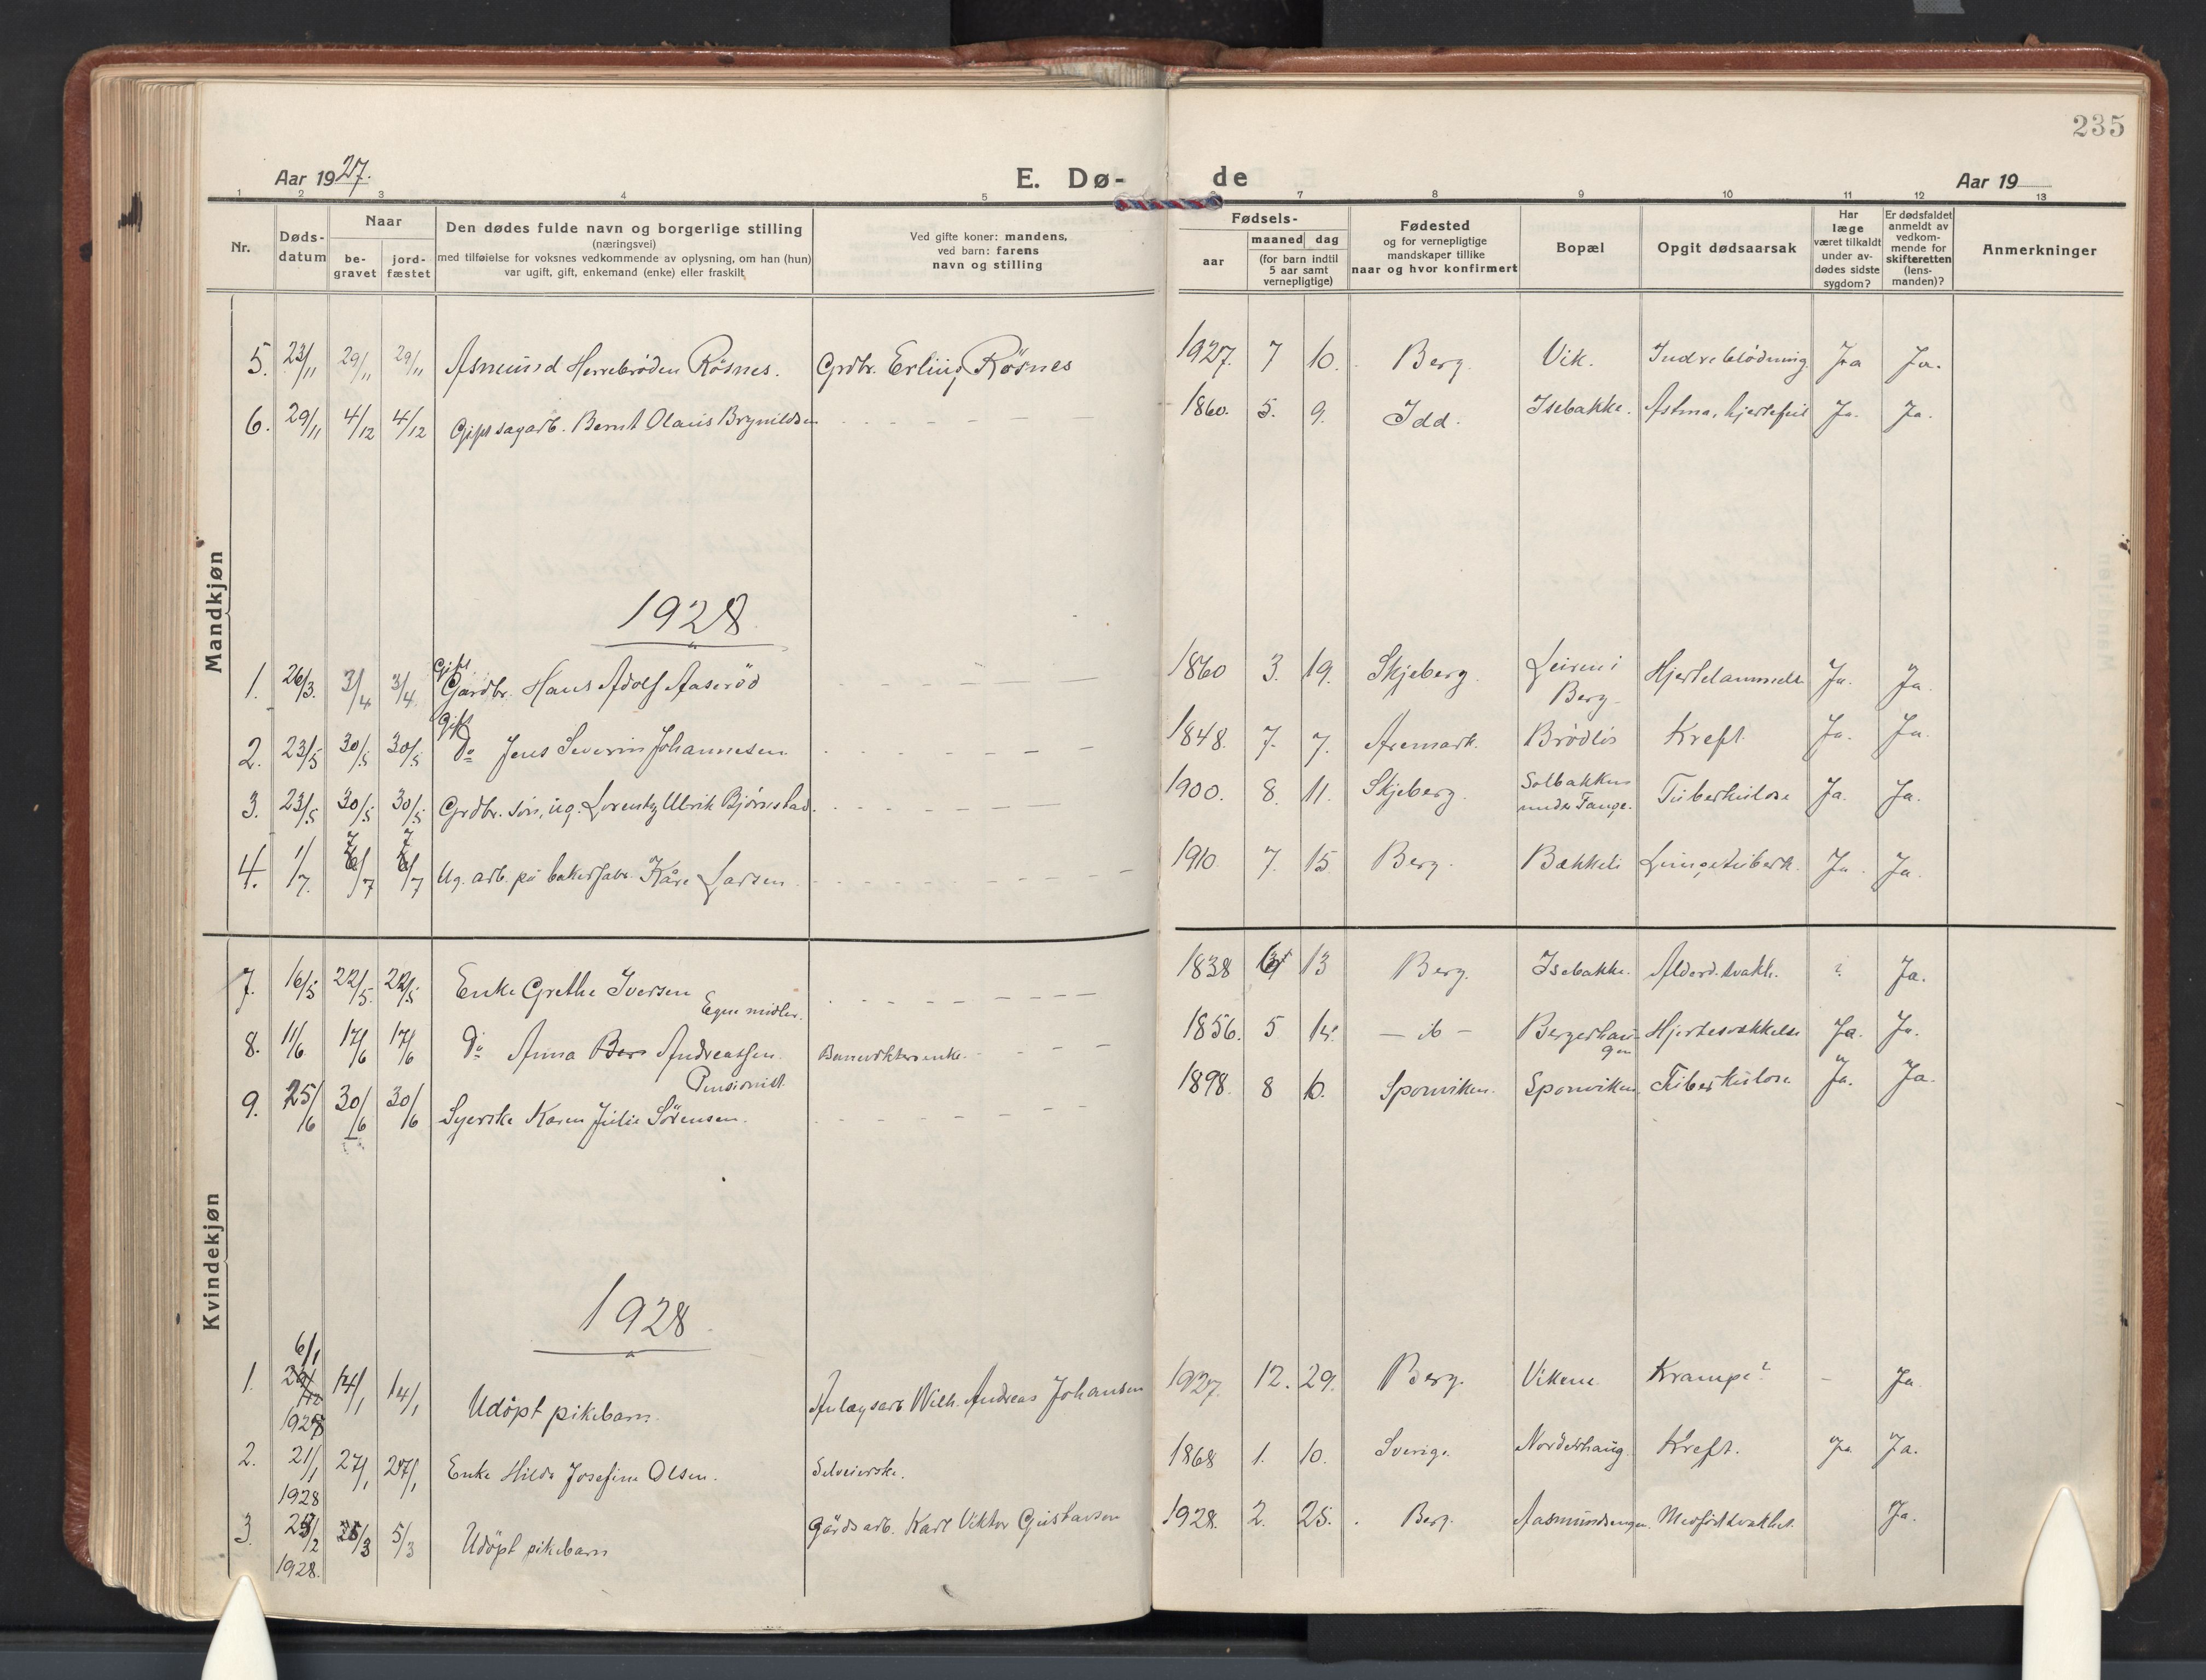 235
Aar 1927.
E. Dø- de
Aar 19
1 2 3 4 5 7 8 9 10 11 12 13
Nr.
Døds-
datum
Naar
be-
gravet
jord-
fæstet
Den dødes fulde navn og borgerlige stilling
(næringsvei)
med tilføielse for voksnes vedkommende av oplysning, om han (hun)
var ugift, gift, enkemand (enke) eller fraskilt
Ved gifte koner: mandens,
ved barn: farens
navn og stilling
Fødsels-
aar
maaned dag
(for barn indtil
5 aar samt
vernepligtige)
Fødested
og for vernepligtige
mandskaper tillike
naar og hvor konfirmert
Bopæl
Opgit dødsaarsak
Har
læge
været tilkaldt
under av-
dødes sidste
sygdom?
Er dødsfaldet
anmeldt av
vedkom-
mende for
skifteretten
(lens-
manden)?
Anmerkninger
Mandkjøn
5. 23/11 29/11 29/11 Asmund Herrebrøden Røsnes. Grdbr. Erling Røsnes 1927. 7 10. Berg. Vik. Indre blødning Ja Ja.
6. 29/11 4/12 4/12 Gift sagarb. Bernt Olaus Brynildsen 1860. 5. 9. Idd. Isebakke. Astma, hjertefeil Ja. Ja.
1928
1. 26/3. 3/4 3/4. Gift Gardbr. Hans Adolf Aaserød 1860 3. 19. Skjeberg. Leiren i Berg Hjertelammelse Ja. Ja.
2. 23/5 30/5 30/5 Gift Do Jens Severin Johannesen 1848. 7. 7. Aremark. Brødløs Kreft Ja. Ja
3. 23/5 30/5 30/5 Grdbr. søn, ug. Lorentz Ulrik Bjørnstad. 1900. 8. 11. Skjeberg. Solbakken under Tange. Tuberkulose Ja. Ja.
4. 1/7. 7/7 7/7 Ug. arb. på Kåre Larsen. 1910 7. 15 Berg. Bækkeli Lungetuberk. Ja. Ja.
Kvindekjøn
7. 16/5 22/5. 22/5. Enke Grethe Iversen Egne midler. 1838 13 Berg. Isebakke. Alderd.svakh. ? Ja.
8. 11/6. 17/6 17/6 Do Anna Ber Andreassen. Pensionist. Banevokters enke. 1856. 5 14. — ib — Bergerhaugen Hjertesvakkelse Ja. Ja.
9. 25/6 30/6 30/6 Syerske Karen Julie Sørensen. 1898. 8 10. Sponviken. Sponviken. Tuberkulose Ja. Ja.
1928
1. 6/1 1928 14/1 14/1 Udøpt pikebarn. Anlægsarb. Wilh. Andreas Johansen 1927. 12. 29. Berg. Vikene. Krampe? – Ja
2. 21/1 1928 27/1 27/1 Enke Hilda Josefine Olsen. Selveierske. 1868 1. 10. Sverige. Norderhaug. Kreft. Ja Ja.
3. 25/2 1928. 5/3 5/3 Udøpt pikebarn Gårdsarb. Karl Viktor Gustavsen 1928. 2. 25. Berg. Aasmundsengen. Medfødt svakhet. Ja.